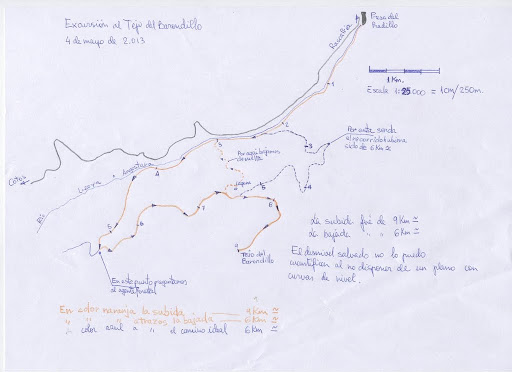 Excursión al Tejo del Barondillo
4 de mayo de 2.013
Presa del
Pradillo
Rascafría
1 Km.
Escala 1:25.000 = 1cm/250m.
1
2
3
Por esta senda
el recorrido hubiera
sido de 6 Km
Por aquí bajamos
de vuelta
3
4
Angostura
Lozoya
Río
Cotos
4
5
5
6
7
8
9
Tejo del
Barondillo
En este punto preguntamos
al agente forestal
La subida fué de 9 Km
La bajada " " 6 Km
El desnivel salvado no lo puedo
cuantificar al no disponer de un plano con
curvas de nivel.
En color naranja la subida 9 Km
" " " a trazos la bajada 6 Km
" color azul a " el camino ideal 6 Km